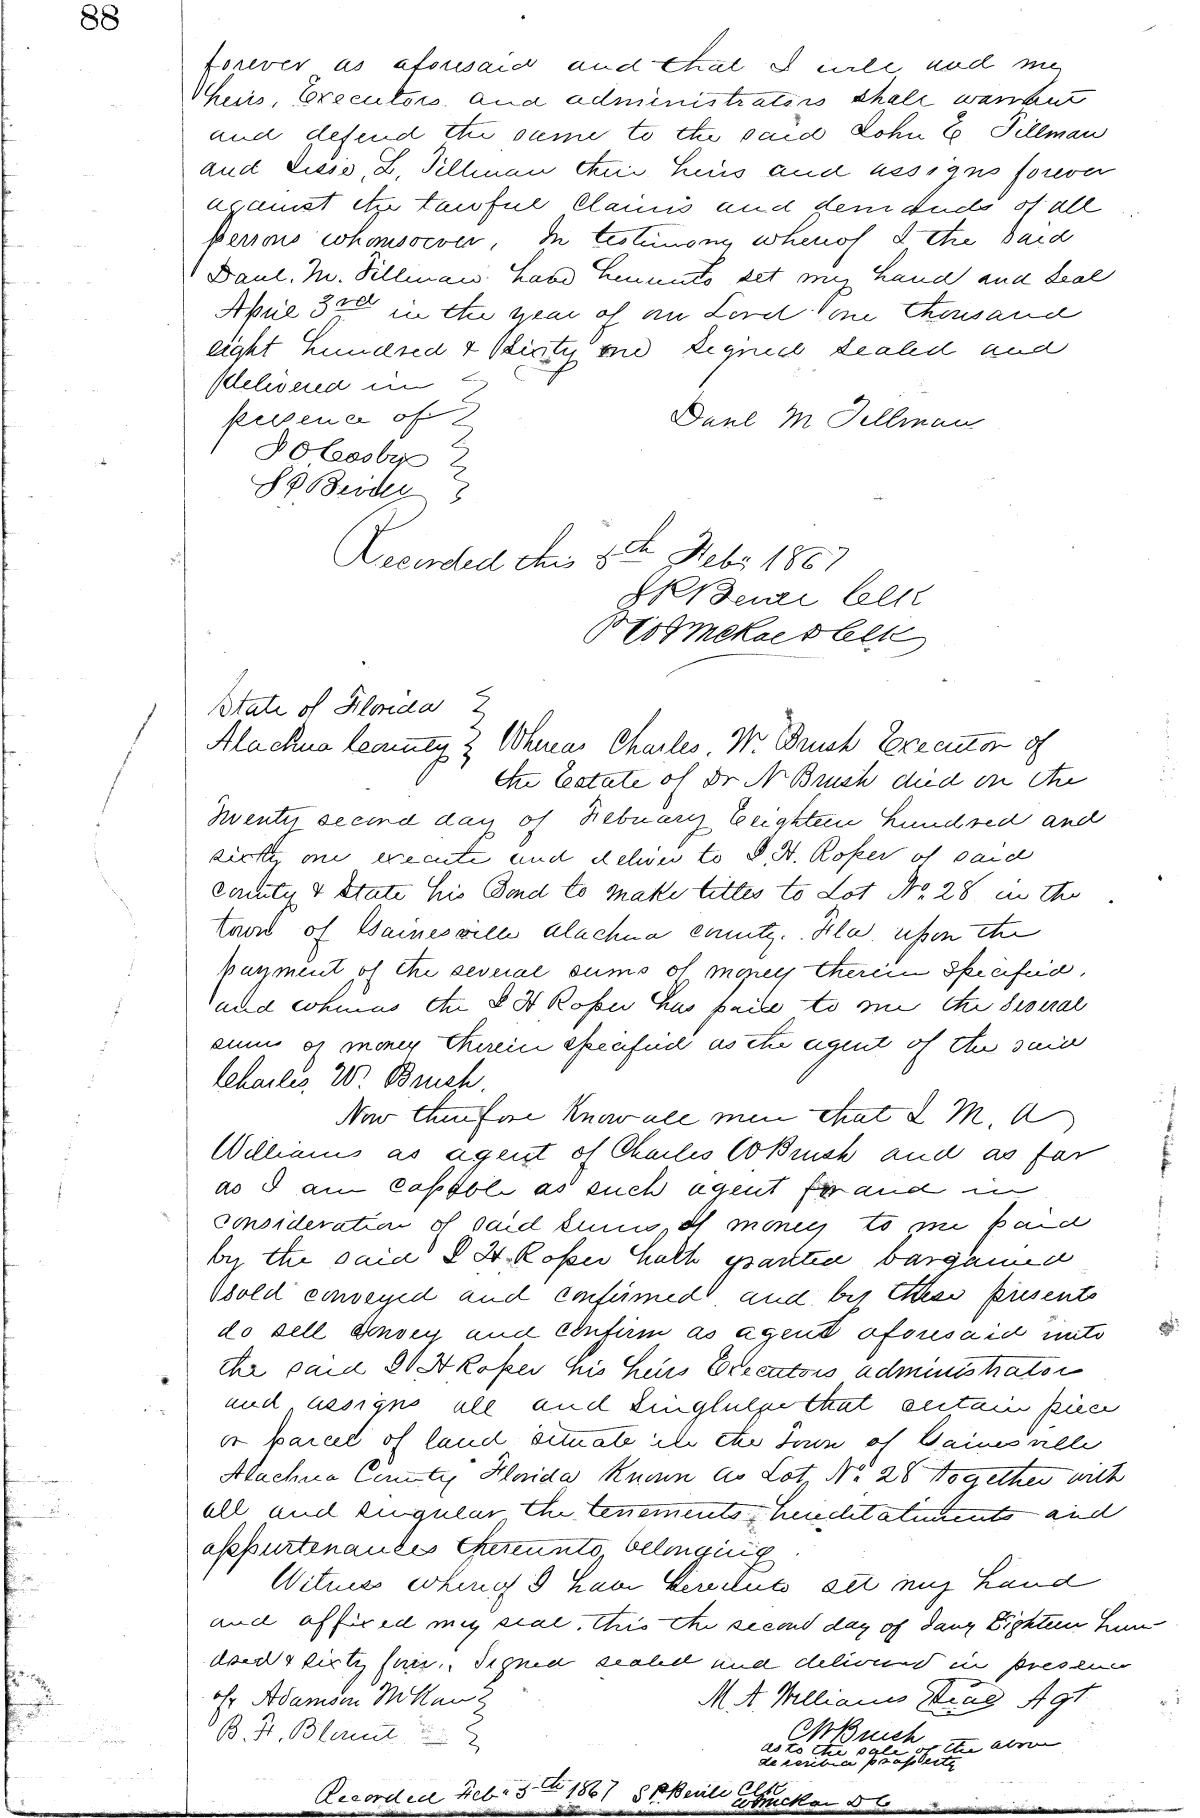 88
forever as aforesaid and that I will and my
heirs, Executors and administrators shall warrant
and defend the same to the said John E Tillman
and Lisie, L, Tillman their heirs and assigns forever
against the lawful claims and demands of all
persons whomsoever, In testimony whereof I the said
Danl. M. Tillman have hereunto set my hand and seal
April 3rd in the year of our Lord one thousand
eight hundred & sixty one Signed sealed and
delivered in
presence of
Danl M Tillman
Cosby
S P Beville
Recorded this 5th Feby 1867
Clk
McKae D Clk
State of Florida
Alachua County Whereas Charles, W. Brush Executor of
the Estate of Dr N Brush did on the
Twenty second day of Febuary Eeighteen hundred and
sixty one execute and deliver to I. H. Roper of said
county & State his Bond to make titles to Lot No. 28 in the
town of Gainesville Alachua county. Fla. upon the
payment of the several sums of money therein specified.
and whereas the I H Roper has paid to me the several
sums of money therein specified as the agent of the said
Charles, W. Brush.
Now therefore Know all men that I M. A
Williams as agent of Charles W Brush and as far
as I am capable as such agent for and in
consideration of said sums of money to me paid
by the said I H. Roper hath granted bargained
sold conveyed and confirmed and by these presents
do sell convey and confirm as agent aforesaid unto
the said I H Roper his heirs Executors administrators
and assigns all and Singlular that certain piece
or parcel of land situate in the Town of Gainesville
Alachua County Florida Known as Lot No. 28 together with
all and singular the tenements hereditatiments and
appurtenances thereunto belonging.
Witness whereof I have hereunto set my hand
and affixed my seal. this the second day of Jany Eighteen hun-
dred & sixty four. Signed sealed and delivered in presence
of Adamson McKae
M A Williams Seal Agt
B. F. Blount
C W Brush
as to the sale of the above
described property
Recorded Feby 5th 1867 S P Beville Clk
McKae D C